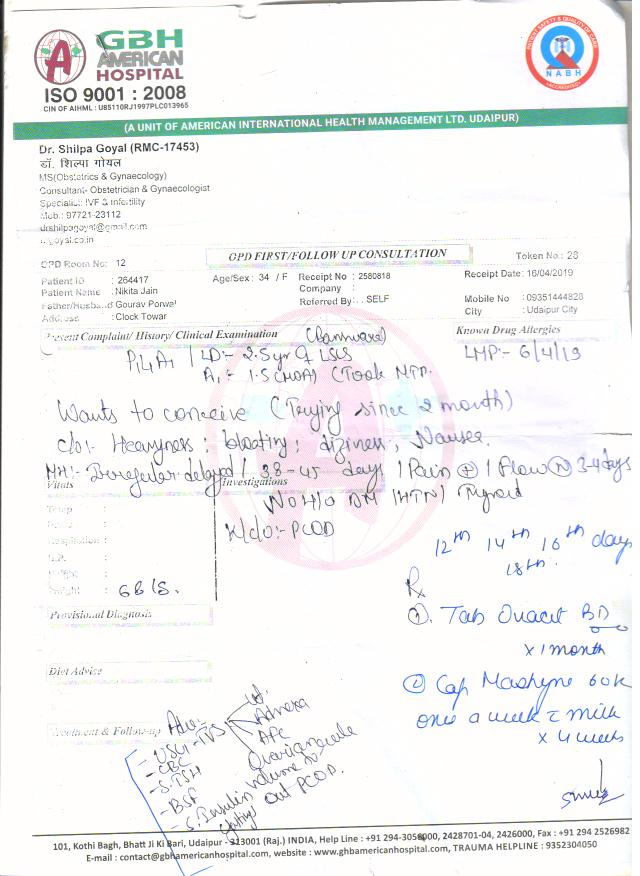 GBH
AMERICAN
HOSPITAL
ISO 9001 : 2008
CIN OF AIHML : U85110RJ1997PLC013965
PATIENT SAFETY & QUALITY OF CARE
NABH
ACCREDITED
(A UNIT OF AMERICAN INTERNATIONAL HEALTH MANAGEMENT LTD. UDAIPUR)
Dr. Shilpa Goyal (RMC-17453)
डॉ. शिल्पा गोयल
MS(Obstetrics & Gynaecology)
Consultant- Obstetrician & Gynaecologist
Specialist: IVF & Infertility
Mob.: 97721-23112
drshilpagoyal@gmail.com
goyal.co.in
OPD FIRST/FOLLOW UP CONSULTATION
OPD Room No: 12 Token No.: 28
Patient ID : 264417 Age/Sex : 34 / F Receipt No : 2580818 Receipt Date : 16/04/2019
Patient Name : Nikita Jain Company :
Father/Husband Gourav Porwal Referred By : SELF Mobile No : 09351444828
Address : Clock Towar City : Udaipur City
Present Complaint/ History/ Clinical Examination Known Drug Allergies
P1L1A1 / LD:- 2.5yr ♀ LSCS LMP:- 6/4/19
A1:- 1.5 (MOA) (Took MTP.
Wants to conceive (Trying since 2 month)
c/o:- Heavyness; bloating; diziness, Nausea.
MH:- Irregular delayed / 38-45 days / Pain ⊕ / Flow Ⓝ 3-4 days
Vitals Investigations
No H/o DM / HTN / Thyroid
K/c/o:- PCOD
Temp :
Pulse :
Respiration :
B.P. :
Height :
Weight :
12th 14th 16th days
18th
Rx
Provisional Diagnosis
①. Tab BD
x 1 month
Diet Advise
② Cap 60K
once a week c milk
x 4 weeks
Treatment & Follow-up
Adv:-
- USG-TVS
Adnexa
AFC
Ovarian
volume
out PCOD.
- CBC
- S.TSH
- BSF
- S. Insulin
fasting
101, Kothi Bagh, Bhatt Ji Ki Bari, Udaipur - 313001 (Raj.) INDIA, Help Line : +91 294-3056000, 2428701-04, 2426000, Fax : +91 294 2526982
E-mail : contact@gbhamericanhospital.com, website : www.ghbamericanhospital.com, TRAUMA HELPLINE : 9352304050